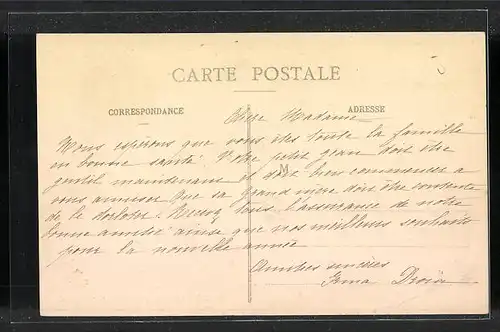 CARTE POSTALE
CORRESPONDANCE
ADRESSE
Chère Madame
Nous espérons que vous êtes toute la famille
en bonne santé. Votre petit Jean doit être
gentil maintenant et doit bien commencer à
M
vous amuser que sa grand mère doit être contente
de le dorloter. Recevez tous l'assurance de notre
bonne amitié ainsi que nos meilleurs souhaits
pour la nouvelle année
Amitiés sincères
Irma